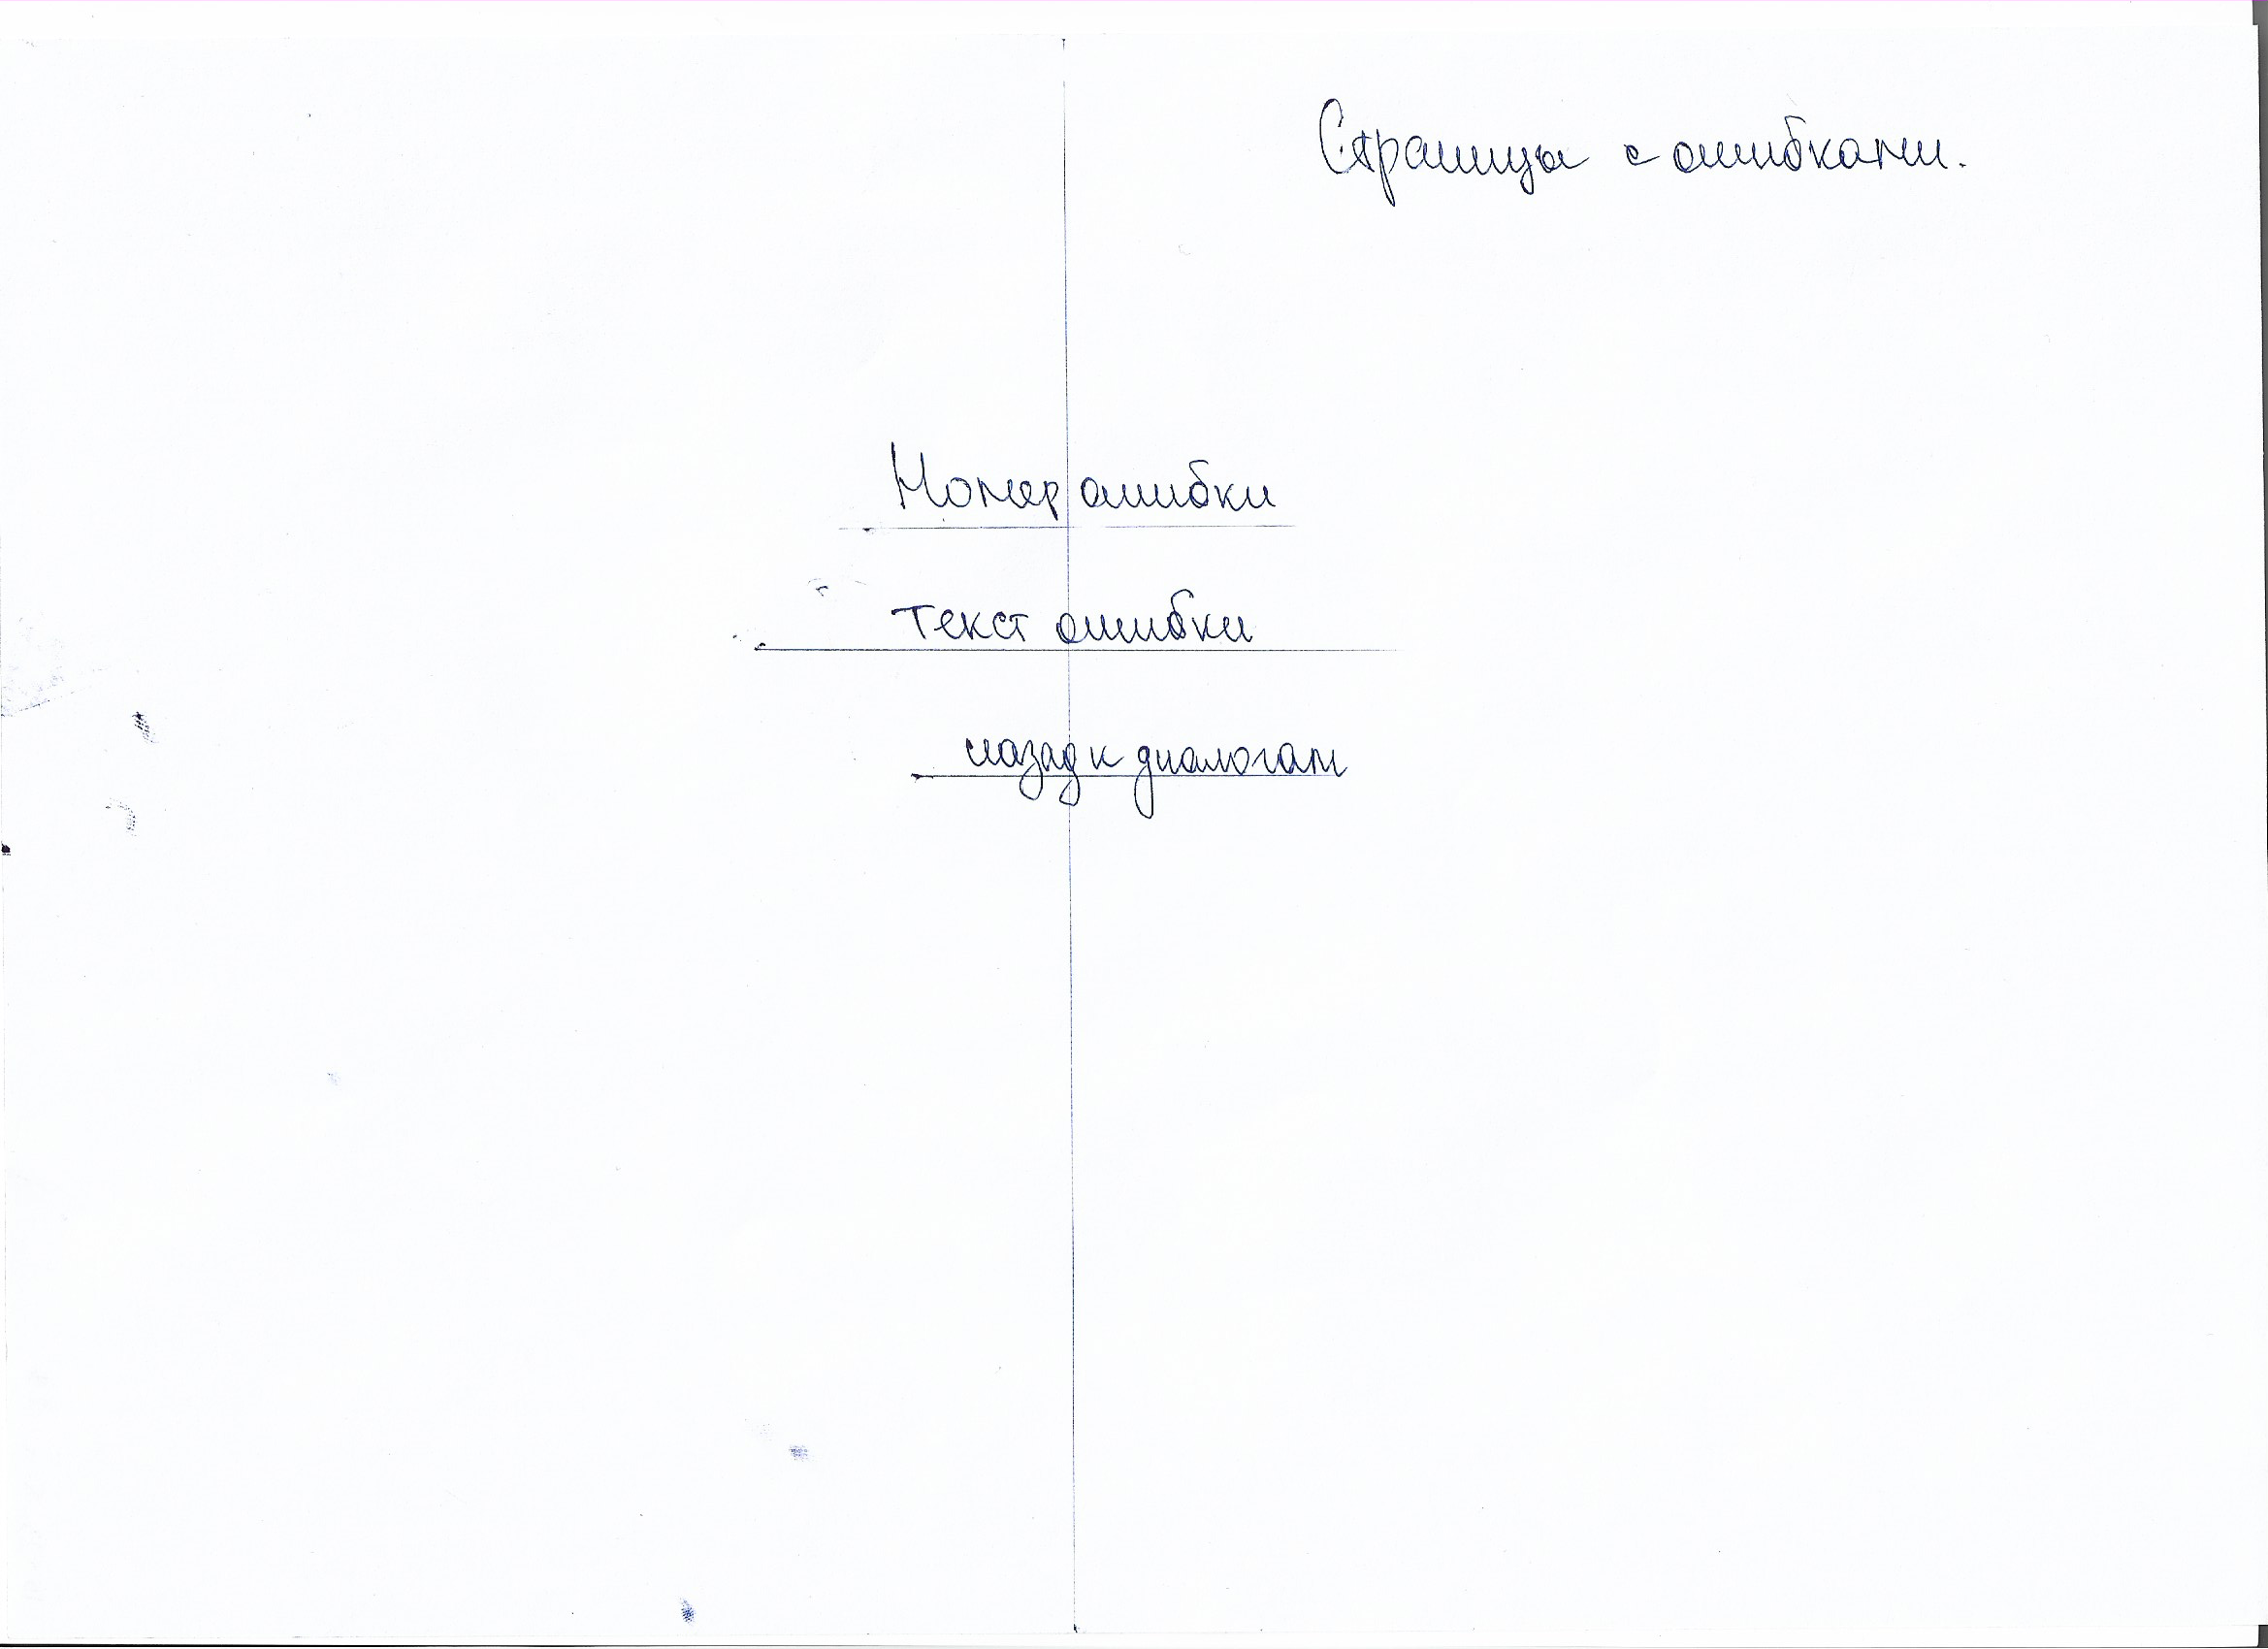 Страницы с ошибками.
Номер ошибки
Текст ошибки
назад к диалогам